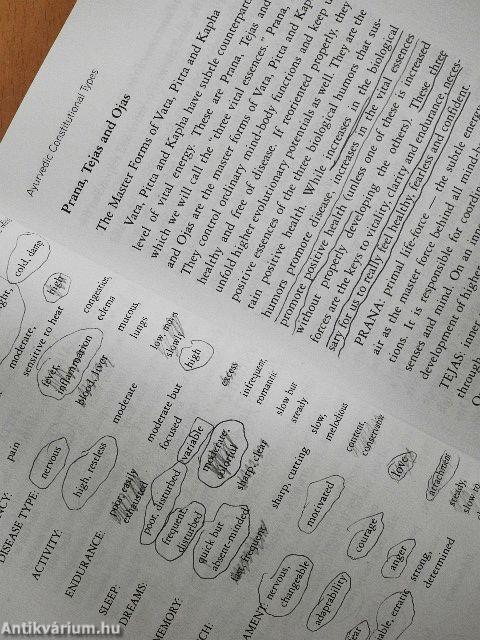 Ayurvedic Constitutional Types
Prana, Tejas and Ojas
The Master Forms of Vata, Pitta and Kapha
Vata, Pitta and Kapha have subtle counterparts
level of vital energy. These are Prana, Tejas and
which we will call the "three vital essences." Prana,
and Ojas are the master forms of Vata, Pitta and Kap
They control ordinary mind-body functions and keep u
healthy and free of disease. If reoriented properly, they
unfold higher evolutionary potentials as well. They are the
positive essences of the three biological humors that sus-
tain positive health. While increases in the biological
humors promote disease, increases in the vital essences
promote positive health (unless one of these is increased
without properly developing the others). These three
forces are the keys to vitality, clarity and endurance neces-
sary for us to really feel healthy, fearless and confident.
PRANA: primal life-force — the subtle energy
air as the master force behind all mind-b
tions. It is responsible for coordin
senses and mind. On an inne
development of higher
TEJAS: inner
through
cold, damp
high
congestion,
edema
mucous,
lungs
low, main
slowly
high
excess
infrequent,
romantic
slow but
steady
slow,
melodious
content,
conservative
love
attachment
steady,
slow in
moderate,
sensitive to heat
fever,
inflammation
blood, liver
moderate
moderate but
focused
variable
moderate,
colorful
sharp, clear
sharp, cutting
motivated
courage
anger
strong,
determined
pain
nervous
high, restless
poor, easily
exhausted
poor, disturbed
frequent,
disturbed
quick but
absent-minded
fast, frequent
nervous,
changeable
adaptability
fear
able, erratic
DISEASE TYPE:
ACTIVITY:
ENDURANCE:
SLEEP:
DREAMS:
MEMORY:
Antikvárium.hu